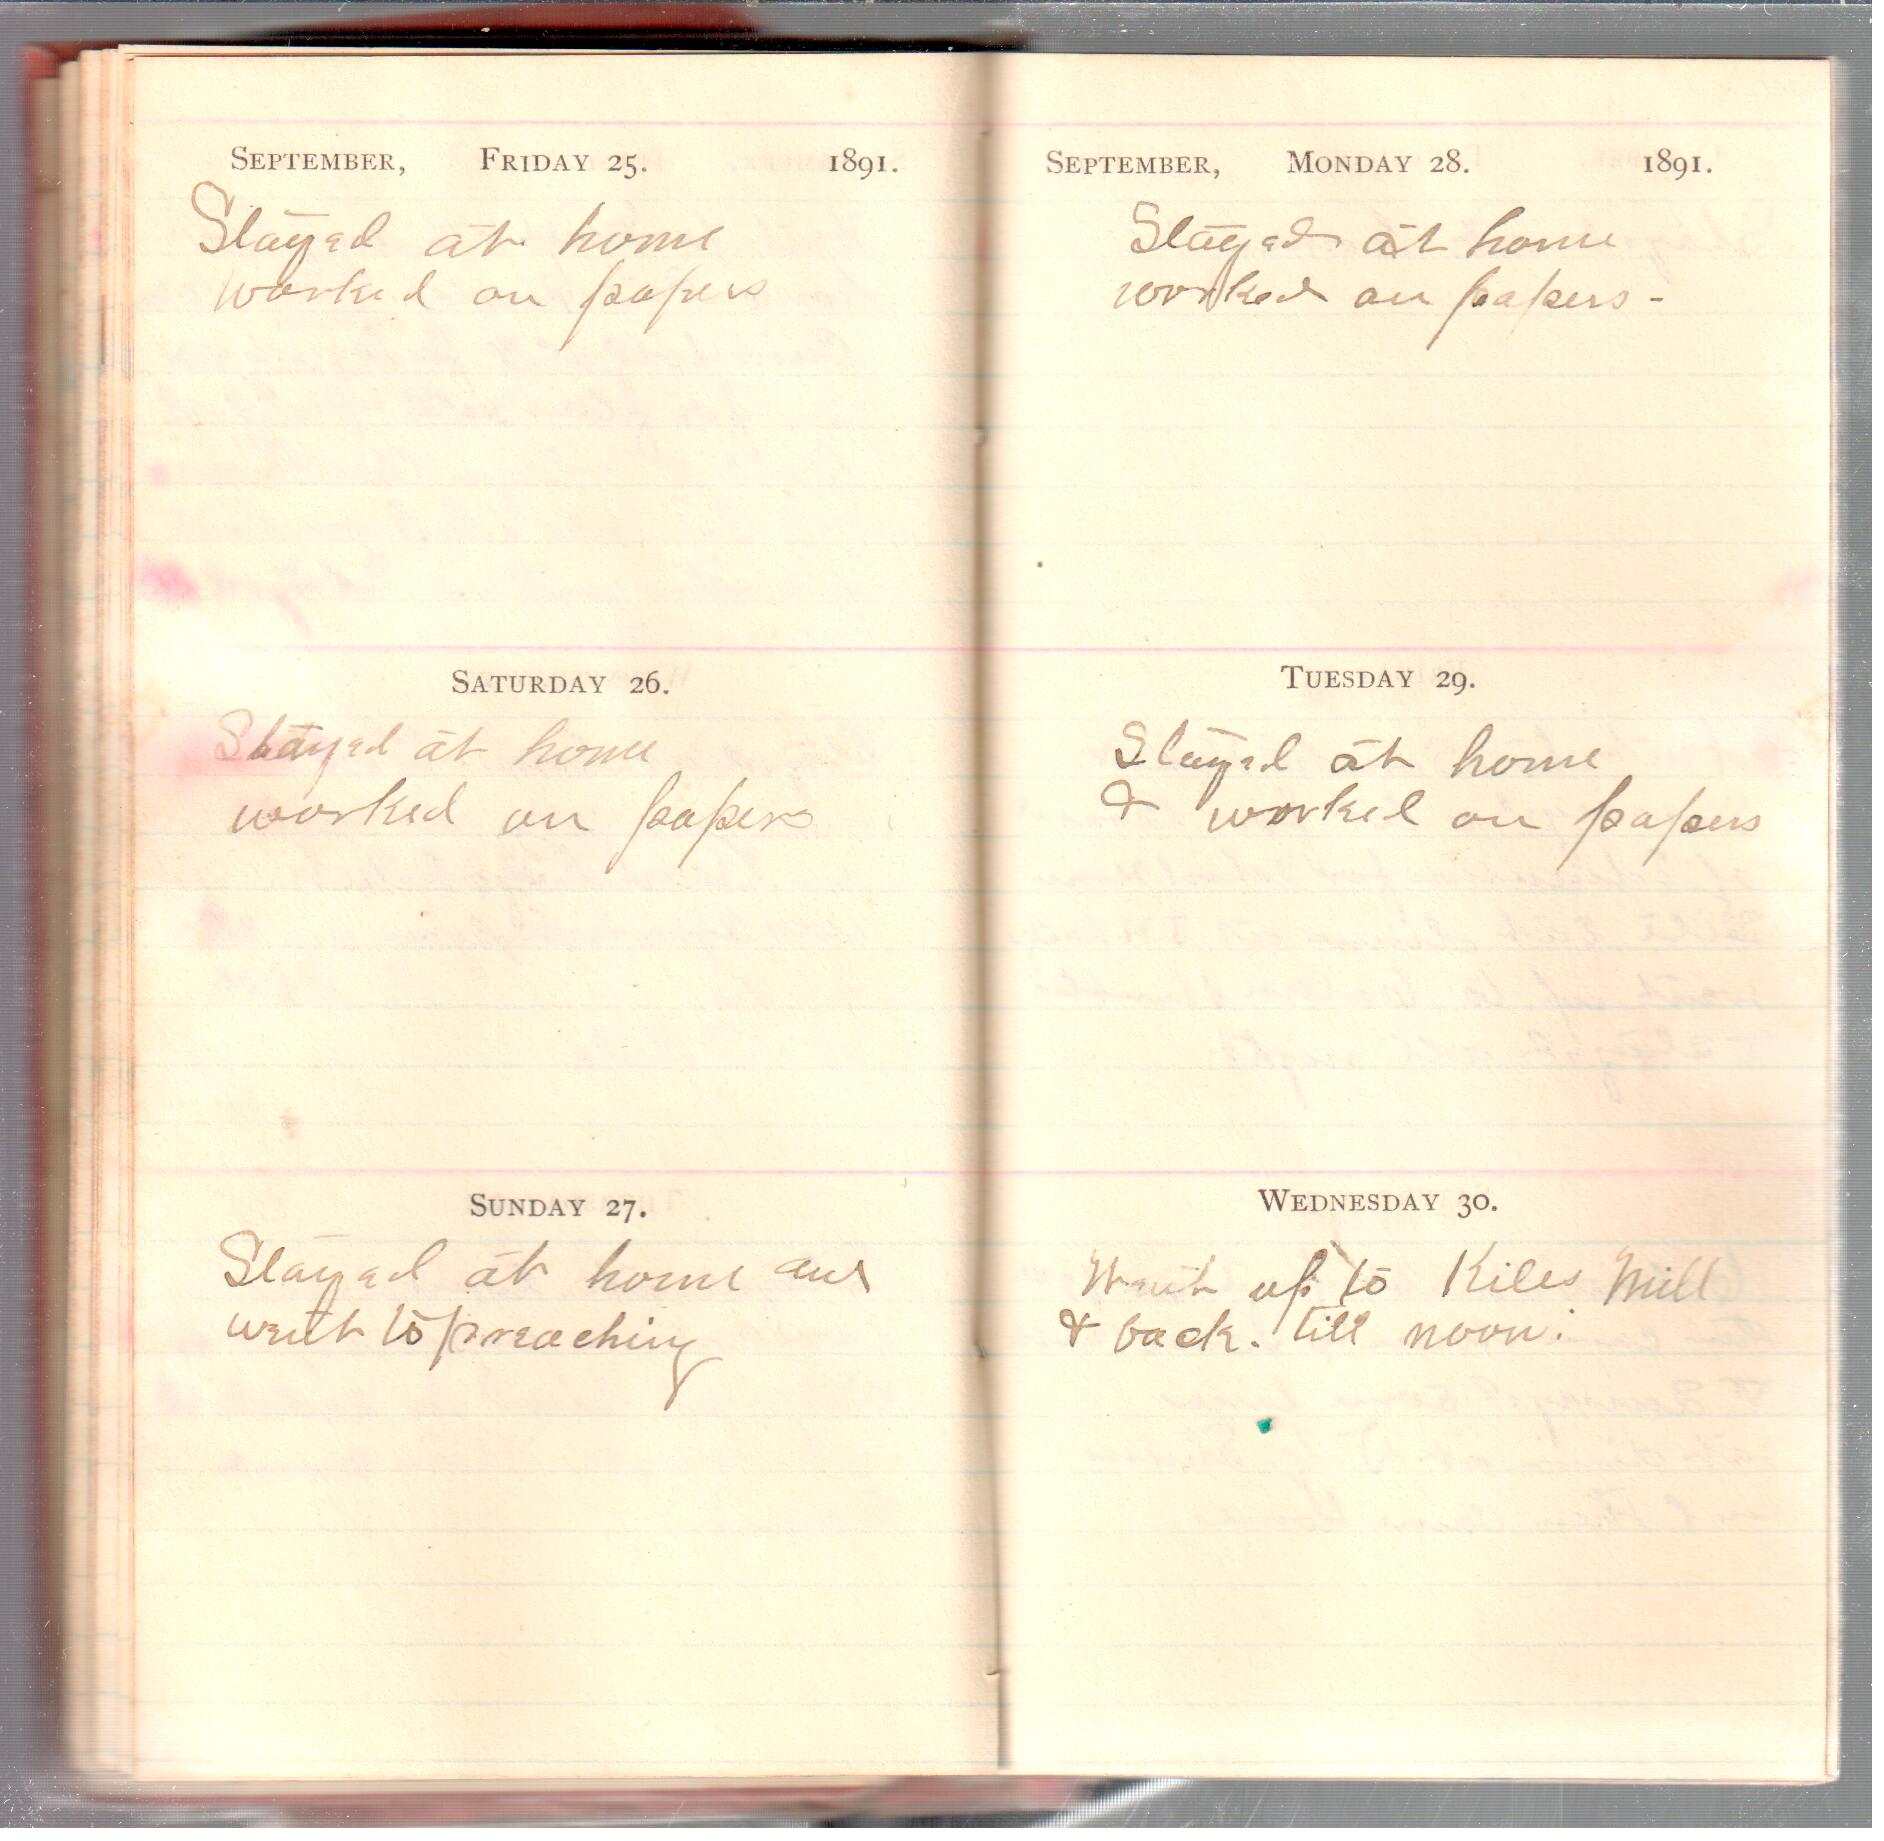 SEPTEMBER, FRIDAY 25. 1891.
Stayed at home
worked on papers
SATURDAY 26.
Stayed at home
worked on papers
SUNDAY 27.
Stayed at home and
went to preaching
SEPTEMBER, MONDAY 28. 1891.
Stayed at home
worked on papers -
TUESDAY 29.
Stayed at home
& worked on papers
WEDNESDAY 30.
Went up to Kiles Mill
& back. till noon.